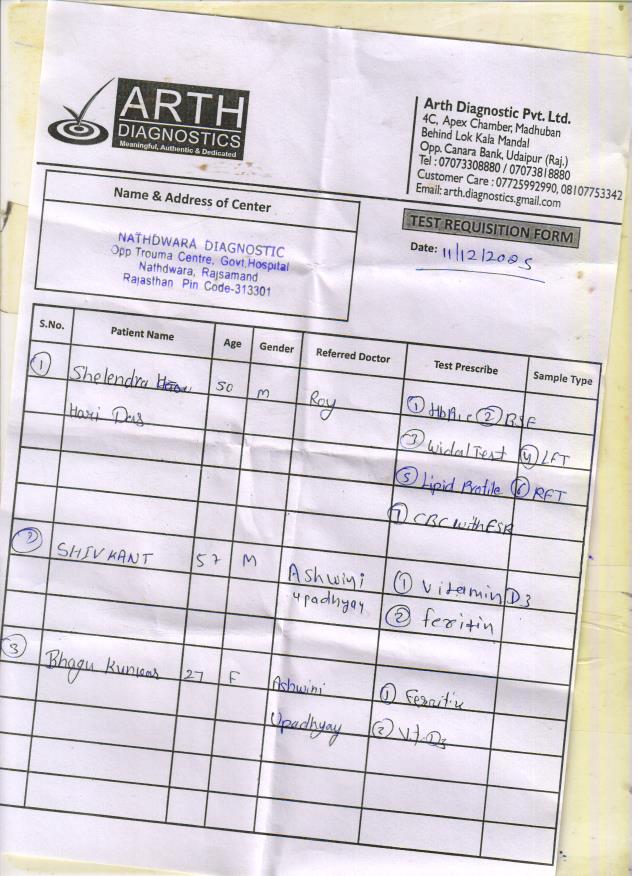 ARTH
DIAGNOSTICS
Meaningful, Authentic & Dedicated
Arth Diagnostic Pvt. Ltd.
4C, Apex Chamber, Madhuban
Behind Lok Kala Mandal
Opp. Canara Bank, Udaipur (Raj.)
Tel : 07073308880 / 07073818880
Customer Care : 07725992990, 08107753342
Email: arth.diagnostics.gmail.com
Name & Address of Center
NATHDWARA DIAGNOSTIC
Opp Trouma Centre, Govt.Hospital
Nathdwara, Rajsamand
Rajasthan Pin Code-313301
TEST REQUISITION FORM
Date: 11/12/2025
S.No. Patient Name Age Gender Referred Doctor Test Prescribe Sample Type
① Shelendra 50 M Roy ① HbA1c ②
Hari Das ③ Widal Test ④ LFT
⑤ Lipid Profile ⑥ RFT
⑦ CBC with ESR
② SHIVKANT 57 M Ashwini ① Vitamin D3
Upadhyay ② feritin
③ Bhagu 27 F Ashwini ① Ferritin
Upadhyay ② Vit.D3